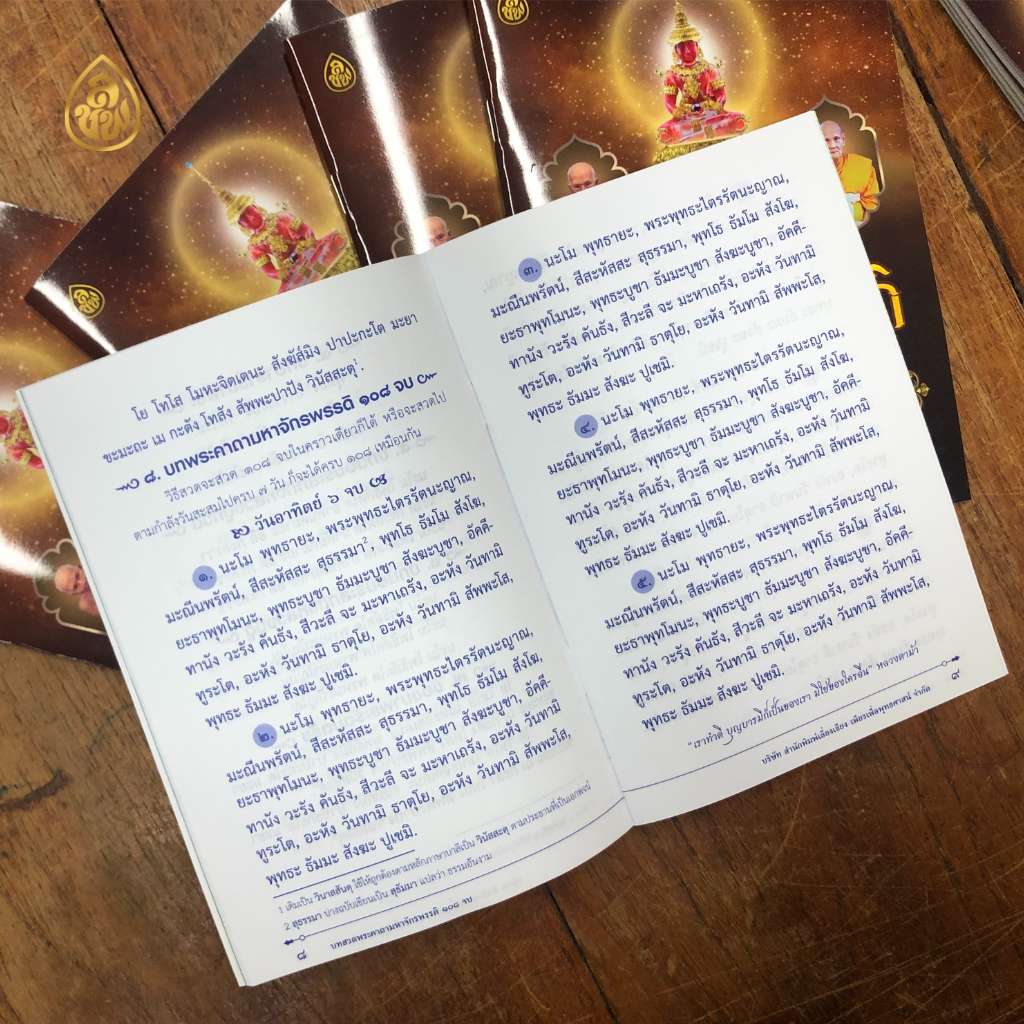 โย โทโส โมหะจิตเตนะ สังฆัส๎มิง ปาปะกะโต มะยา
ขะมะถะ เม กะตัง โทสัง สัพพะปาปัง วินัสสะตุ¹.
๘. บทพระคาถามหาจักรพรรดิ ๑๐๘ จบ
วิธีสวดจะสวด ๑๐๘ จบในคราวเดียวก็ได้ หรือจะสวดไป
ตามกำลังวันสะสมไปครบ ๗ วัน ก็จะได้ครบ ๑๐๘ เหมือนกัน
วันอาทิตย์ ๖ จบ
๑. นะโม พุทธายะ, พระพุทธะไตรรัตนะญาณ,
มะณีนพรัตน์, สีสะหัสสะ สุธรรมา², พุทโธ ธัมโม สังโฆ,
ยะธาพุทโมนะ, พุทธะบูชา ธัมมะบูชา สังฆะบูชา, อัคคี-
ทานัง วะรัง คันธัง, สีวะลี จะ มะหาเถรัง, อะหัง วันทามิ
ทูระโต, อะหัง วันทามิ ธาตุโย, อะหัง วันทามิ สัพพะโส,
พุทธะ ธัมมะ สังฆะ ปูเชมิ.
๒. นะโม พุทธายะ, พระพุทธะไตรรัตนะญาณ,
มะณีนพรัตน์, สีสะหัสสะ สุธรรมา, พุทโธ ธัมโม สังโฆ,
ยะธาพุทโมนะ, พุทธะบูชา ธัมมะบูชา สังฆะบูชา, อัคคี-
ทานัง วะรัง คันธัง, สีวะลี จะ มะหาเถรัง, อะหัง วันทามิ
ทูระโต, อะหัง วันทามิ ธาตุโย, อะหัง วันทามิ สัพพะโส,
พุทธะ ธัมมะ สังฆะ ปูเชมิ.
1 เดิมเป็น วินาสสันตุ ใช้ให้ถูกต้องตามหลักภาษาบาลีเป็น วินัสสะตุ ตามประธานที่เป็นเอกพจน์
2 สุธรรมา บางฉบับเขียนเป็น สุธัมมา แปลว่า ธรรมอันงาม
๘ บทสวดพระคาถามหาจักรพรรดิ ๑๐๘ จบ
๓. นะโม พุทธายะ, พระพุทธะไตรรัตนะญาณ,
มะณีนพรัตน์, สีสะหัสสะ สุธรรมา, พุทโธ ธัมโม สังโฆ,
ยะธาพุทโมนะ, พุทธะบูชา ธัมมะบูชา สังฆะบูชา, อัคคี-
ทานัง วะรัง คันธัง, สีวะลี จะ มะหาเถรัง, อะหัง วันทามิ
ทูระโต, อะหัง วันทามิ ธาตุโย, อะหัง วันทามิ สัพพะโส,
พุทธะ ธัมมะ สังฆะ ปูเชมิ.
๔. นะโม พุทธายะ, พระพุทธะไตรรัตนะญาณ,
มะณีนพรัตน์, สีสะหัสสะ สุธรรมา, พุทโธ ธัมโม สังโฆ,
ยะธาพุทโมนะ, พุทธะบูชา ธัมมะบูชา สังฆะบูชา, อัคคี-
ทานัง วะรัง คันธัง, สีวะลี จะ มะหาเถรัง, อะหัง วันทามิ
ทูระโต, อะหัง วันทามิ ธาตุโย, อะหัง วันทามิ สัพพะโส,
พุทธะ ธัมมะ สังฆะ ปูเชมิ.
๕. นะโม พุทธายะ, พระพุทธะไตรรัตนะญาณ,
มะณีนพรัตน์, สีสะหัสสะ สุธรรมา, พุทโธ ธัมโม สังโฆ,
ยะธาพุทโมนะ, พุทธะบูชา ธัมมะบูชา สังฆะบูชา, อัคคี-
ทานัง วะรัง คันธัง, สีวะลี จะ มะหาเถรัง, อะหัง วันทามิ
ทูระโต, อะหัง วันทามิ ธาตุโย, อะหัง วันทามิ สัพพะโส,
พุทธะ ธัมมะ สังฆะ ปูเชมิ.
"เราทำดี บุญบารมีก็เป็นของเรา มิใช่ของใครอื่น" หลวงตาม้า
บริษัท สำนักพิมพ์เลี่ยงเชียง เพียรเพื่อพุทธศาสน์ จำกัด ๙